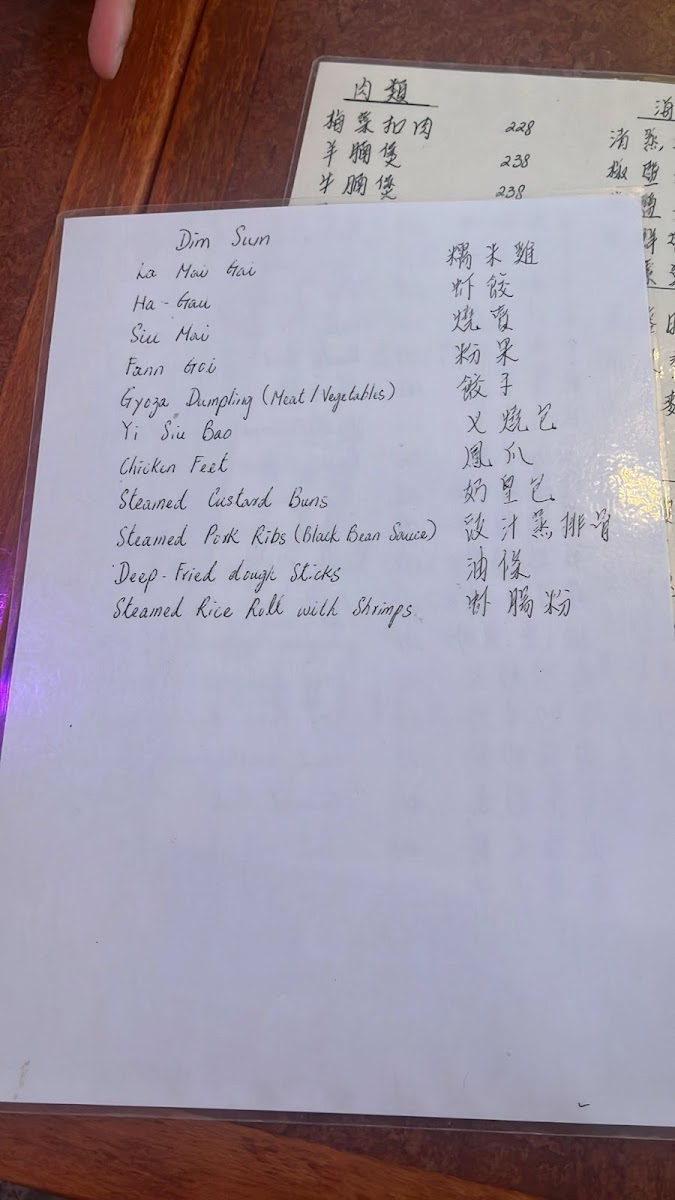 肉類
梅菜扣肉 228
羊腩煲 238
牛腩煲 238
海
清蒸
椒鹽
Dim Sum
La Mai Gai 糯米雞
Ha-Gau 虾餃
Siu Mai 燒賣
Fann Goi 粉果
Gyoza Dumpling (Meat/Vegetables) 餃子
Yi Siu Bao 乂燒包
Chicken Feet 鳳爪
Steamed Custard Buns 奶皇包
Steamed Pork Ribs (Black Bean Sauce) 豉汁蒸排骨
Deep-Fried dough Sticks 油條
Steamed Rice Roll with Shrimps 虾腸粉